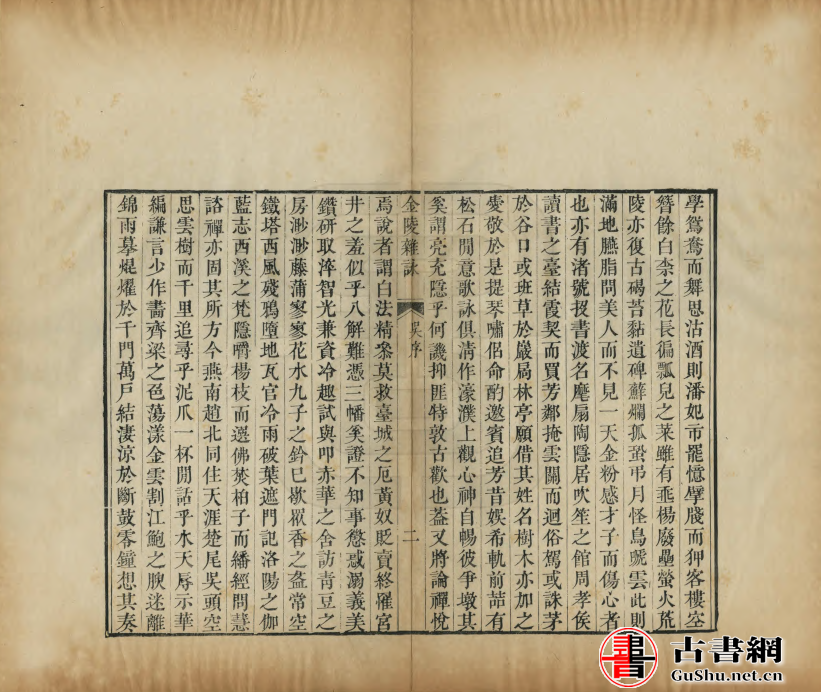 學鴛鴦而舞思沽酒則潘妃市罷憶擘牋而狎客樓空
簪餘白柰之花長徧瓢兒之菜雖有垂楊廢壘螢火荒
陵亦復古碣苔黏遺碑蘚爛孤螀弔月怪鳥號雲此則
滿地臙脂問美人而不見一天金粉感才子而傷心者
也亦有渚號投書渡名麾扇陶隱居吹笙之館周孝侯
讀書之臺結霞契而買芳鄰掩雲關而迴俗駕或誅茅
於谷口或班草於巖扃林亭願借其姓名樹木亦加之
愛敬於是提琴嘯侶命酌邀賓追芳昔娛希軌前喆有
松石閒意歌詠俱清作濠濮上觀心神自暢彼爭墩其
奚謂亮充隱乎何譏抑匪特敦古歡也葢又將論禪悅
金陵雜詠
吳序
二
焉說者謂白法精參莫救臺城之厄黃奴貶賣終罹宮
井之羞似乎八解難憑三幡奚證不知事懲惑溺義美
鑽研取滓智光兼資冷趣試與叩赤華之舍訪青豆之
房渺渺藤蒲寥寥花水九子之鈴巳歇猒香之盎常空
鐵塔西風殘鴉墮地瓦官冷雨破葉遮門記洛陽之伽
藍志西溪之梵隱嚼楊枝而選佛焚柏子而繙經問慧
諮禪亦固其所方今燕南趙北同住天涯楚尾吳頭空
思雲樹而千里追尋乎泥爪一杯閒話乎水天辱示華
編謙言少作畵齊梁之色蕩漾金雲割江鮑之腴迷離
錦雨摹焜燿於千門萬戶結淒涼於斷鼓零鐘想其奏
書
古書網
GuShu.net.cn